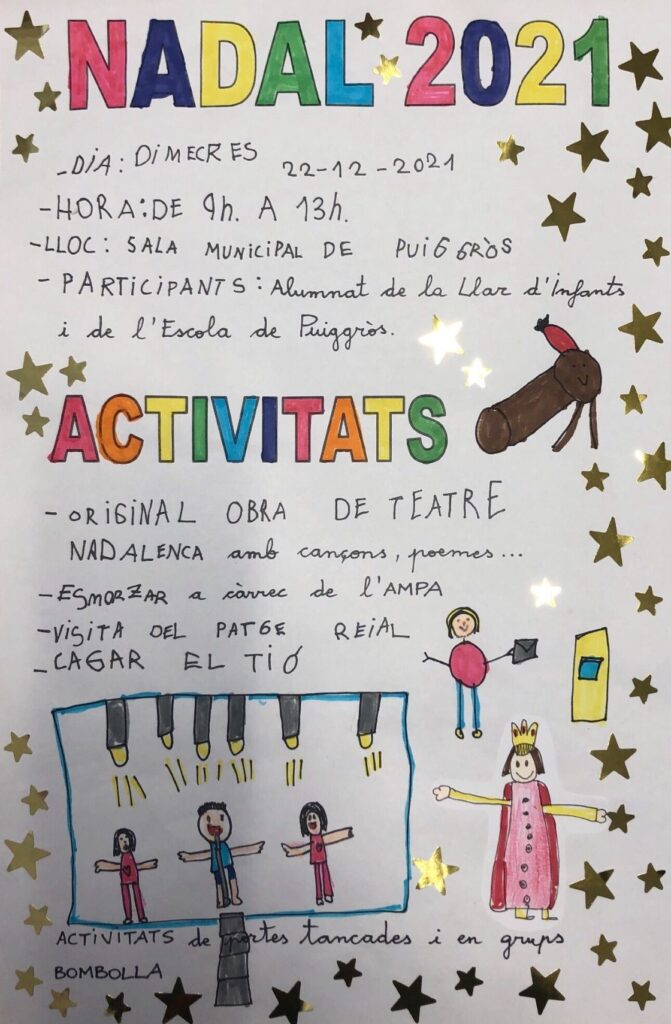 NADAL 2021
-DIA: DIMECRES 22-12-2021
-HORA: DE 9h. A 13h.
-LLOC: SALA MUNICIPAL DE PUIGGRÒS
- PARTICIPANTS: Alumnat de la Llar d'Infants
i de l'Escola de Puiggròs.
ACTIVITATS
- ORIGINAL OBRA DE TEATRE
NADALENCA amb cançons, poemes...
- ESMORZAR a càrrec de l'AMPA
-VISITA DEL PATGE REIAL
-CAGAR EL TIÓ
ACTIVITATS de portes tancades i en grups
BOMBOLLA